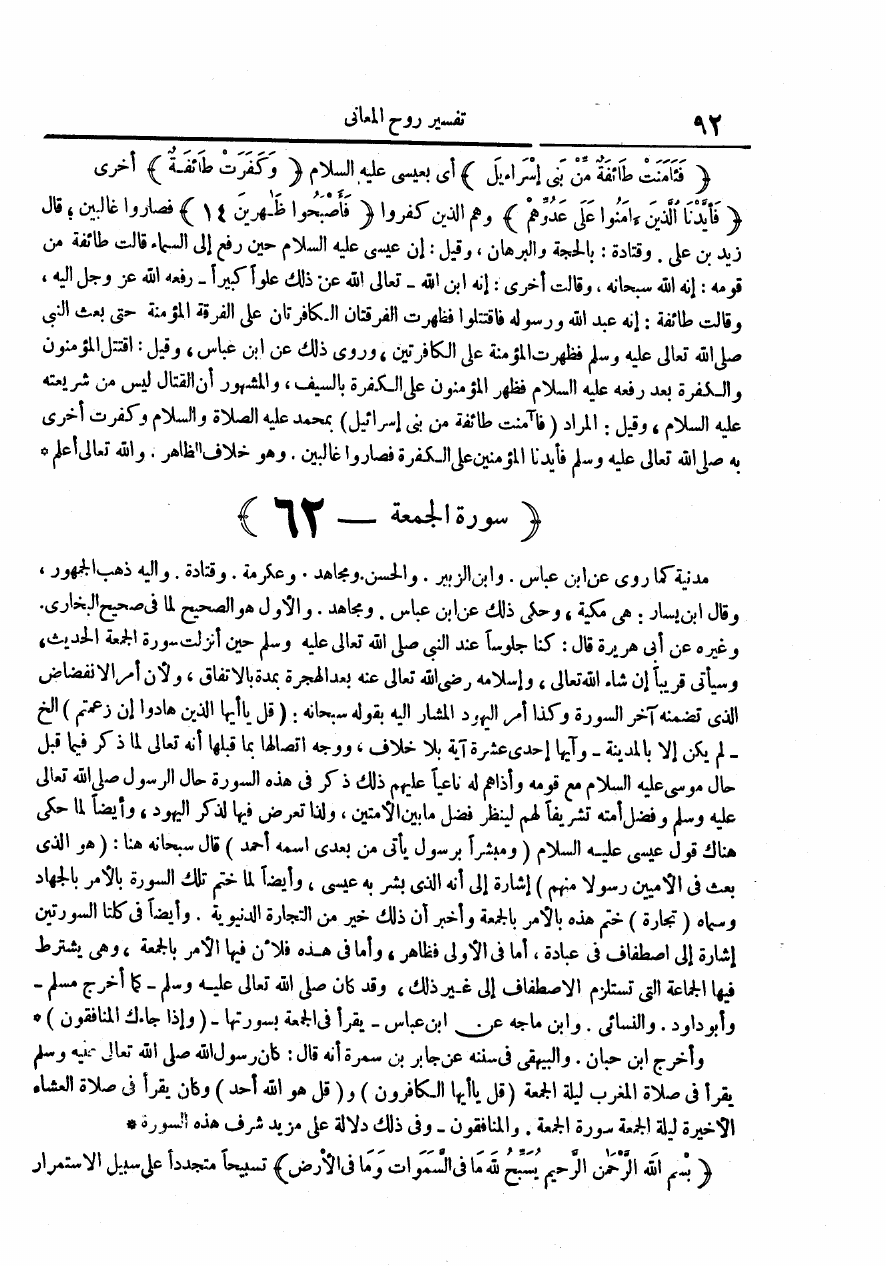 ٩٢
تفسير روح المعانى
﴿ فَـَٔامَنَتْ طَائِفَةٌ مِّنْ بَنِى إِسْرَاءِيلَ ﴾ أى بعيسى عليه السلام ﴿ وَكَفَرَتْ طَائِفَةٌ ﴾ أخرى
﴿ فَأَيَّدْنَا ٱلَّذِينَ ءَامَنُوا عَلَى عَدُوِّهِمْ ﴾ وهم الذين كفروا ﴿ فَأَصْبَحُوا ظَـٰهِرِينَ ١٤ ﴾ فصاروا غالبين ، قال
زيد بن على . وقتادة : بالحجة والبرهان ، وقيل : إن عيسى عليه السلام حين رفع إلى السماء قالت طائفة من
قومه : إنه الله سبحانه ، وقالت أخرى : إنه ابن الله ـ تعالى الله عن ذلك علواً كبيراً ـ رفعه الله عز وجل اليه ،
وقالت طائفة : إنه عبد الله ورسوله فاقتتلوا فظهرت الفرقتان الكافرتان على الفرقة المؤمنة حتى بعث النبى
صلى الله تعالى عليه وسلم فظهرت المؤمنة على الكافرتين ، وروى ذلك عن ابن عباس ، وقيل : اقتتل المؤمنون
والكفرة بعد رفعه عليه السلام فظهر المؤمنون على الكفرة بالسيف ، والمشهور أن القتال ليس من شريعته
عليه السلام ، وقيل : المراد ( فآمنت طائفة من بنى إسرائيل ) بمحمد عليه الصلاة والسلام وكفرت أخرى
به صلى الله تعالى عليه وسلم فأيدنا المؤمنين على الكفرة فصاروا غالبين . وهو خلاف الظاهر . والله تعالى أعلم *
﴿ سورة الجمعة — ٦٢ ﴾
مدنية كما روى عن ابن عباس . وابن الزبير . والحسن . ومجاهد . وعكرمة . وقتادة . واليه ذهب الجمهور ،
وقال ابن يسار : هى مكية ، وحكى ذلك عن ابن عباس . ومجاهد . والأول هو الصحيح لما فى صحيح البخارى .
وغيره عن أبى هريرة قال : كنا جلوساً عند النبى صلى الله تعالى عليه وسلم حين أنزلت سورة الجمعة الحديث ،
وسيأتى قريباً إن شاء الله تعالى ، وإسلامه رضى الله تعالى عنه بعد الهجرة بمدة بالاتفاق ، ولأن أمر الانفضاض
الذى تضمنه آخر السورة وكذا أمر اليهود المشار اليه بقوله سبحانه : ( قل يا أيها الذين هادوا إن زعمتم ) الخ
ـ لم يكن إلا بالمدينة ـ وآيها إحدى عشرة آية بلا خلاف ، ووجه اتصالها بما قبلها أنه تعالى لما ذكر فيما قبل
حال موسى عليه السلام مع قومه وأذاهم له ناعياً عليهم ذلك ذكر فى هذه السورة حال الرسول صلى الله تعالى
عليه وسلم وفضل أمته تشريفاً لهم لينظر فضل ما بين الأمتين ، ولذا تعرض فيها لذكر اليهود ، وأيضاً لما حكى
هناك قول عيسى عليه السلام ( ومبشراً برسول يأتى من بعدى اسمه أحمد ) قال سبحانه هنا : ( هو الذى
بعث فى الأميين رسولا منهم ) إشارة إلى أنه الذى بشر به عيسى ، وأيضاً لما ختم تلك السورة بالأمر بالجهاد
وسماه ( تجارة ) ختم هذه بالأمر بالجمعة وأخبر أن ذلك خير من التجارة الدنيوية . وأيضاً فى كلتا السورتين
إشارة إلى اصطفاف فى عبادة ، أما فى الأولى فظاهر ، وأما فى هذه فلأن فيها الأمر بالجمعة ، وهى يشترط
فيها الجماعة التى تستلزم الاصطفاف إلى غير ذلك ، وقد كان صلى الله تعالى عليه وسلم ـ كما أخرج مسلم ـ
وأبو داود . والنسائى . وابن ماجه عن ابن عباس ـ يقرأ فى الجمعة بسورتها ـ ( وإذا جاءك المنافقون ) *
وأخرج ابن حبان . والبيهقى فى سننه عن جابر بن سمرة أنه قال : كان رسول الله صلى الله تعالى عليه وسلم
يقرأ فى صلاة المغرب ليلة الجمعة ( قل يا أيها الكافرون ) و( قل هو الله أحد ) وكان يقرأ فى صلاة العشاء
الأخيرة ليلة الجمعة سورة الجمعة . والمنافقون ـ وفى ذلك دلالة على مزيد شرف هذه السورة *
﴿ بِسْمِ اللهِ الرَّحْمَٰنِ الرَّحِيمِ يُسَبِّحُ لِلَّهِ مَا فِى السَّمَوَاتِ وَمَا فِى الأَرْضِ ﴾ تسبيحاً متجدداً على سبيل الاستمرار